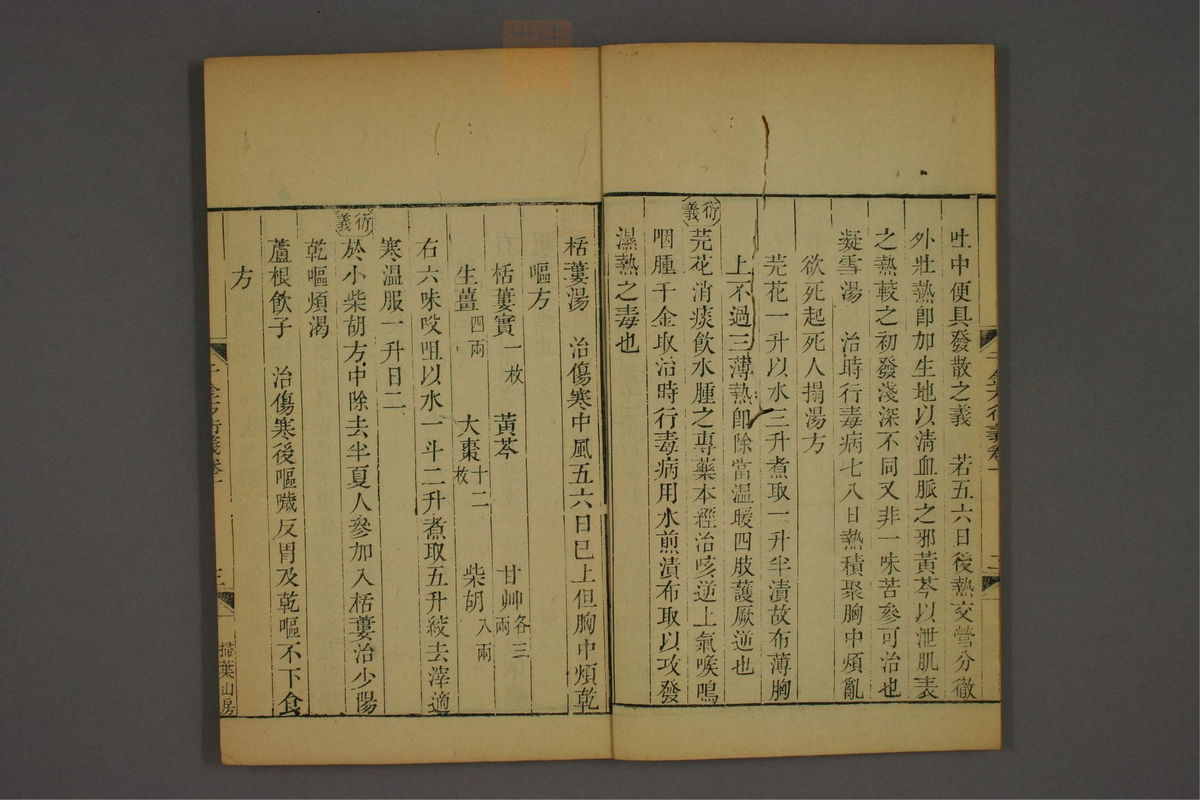 吐中便具發散之義　若五六日後熱交營分徹
外壯熱卽加生地以清血脈之邪黃芩以泄肌表
之熱較之初發淺深不同又非一味苦參可治也
凝雪湯　治時行毒病七八日熱積聚胸中煩亂
欲死起死人搨湯方
芫花一升以水三升煮取一升半漬故布薄胸
上不過三薄熱卽除當溫暖四肢護厥逆也
衍義
芫花消痰飲水腫之專藥本經治咳逆上氣喉鳴
咽腫千金取治時行毒病用水煎漬布取以攻發
濕熱之毒也
栝蔞湯　治傷寒中風五六日已上但胸中煩乾
嘔方
栝蔞實一枚　黃芩　甘艸各三兩
生薑四兩　大棗十二枚　柴胡八兩
右六味㕮咀以水一斗二升煮取五升絞去滓適
寒溫服一升日二
衍義
於小柴胡方中除去半夏人參加入栝蔞治少陽
乾嘔煩渴
蘆根飲子　治傷寒後嘔噦反胃及乾嘔不下食
方
三
掃葉山房